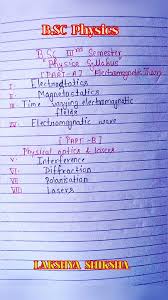 B.SC Physics
B.SC IIIrd Semester
"Physics Syllabus"
[PART-A] Electromagnetic Theory
I. Electrostatics
II. Magnetostatics
III. Time varying electromagnetic
fields
IV. Electromagnetic wave
[PART-B]
Physical optics & lasers
V. Interference
VI. Diffraction
VII. Polarisation
VIII. Lasers
LAKSHYA SHIKSHA